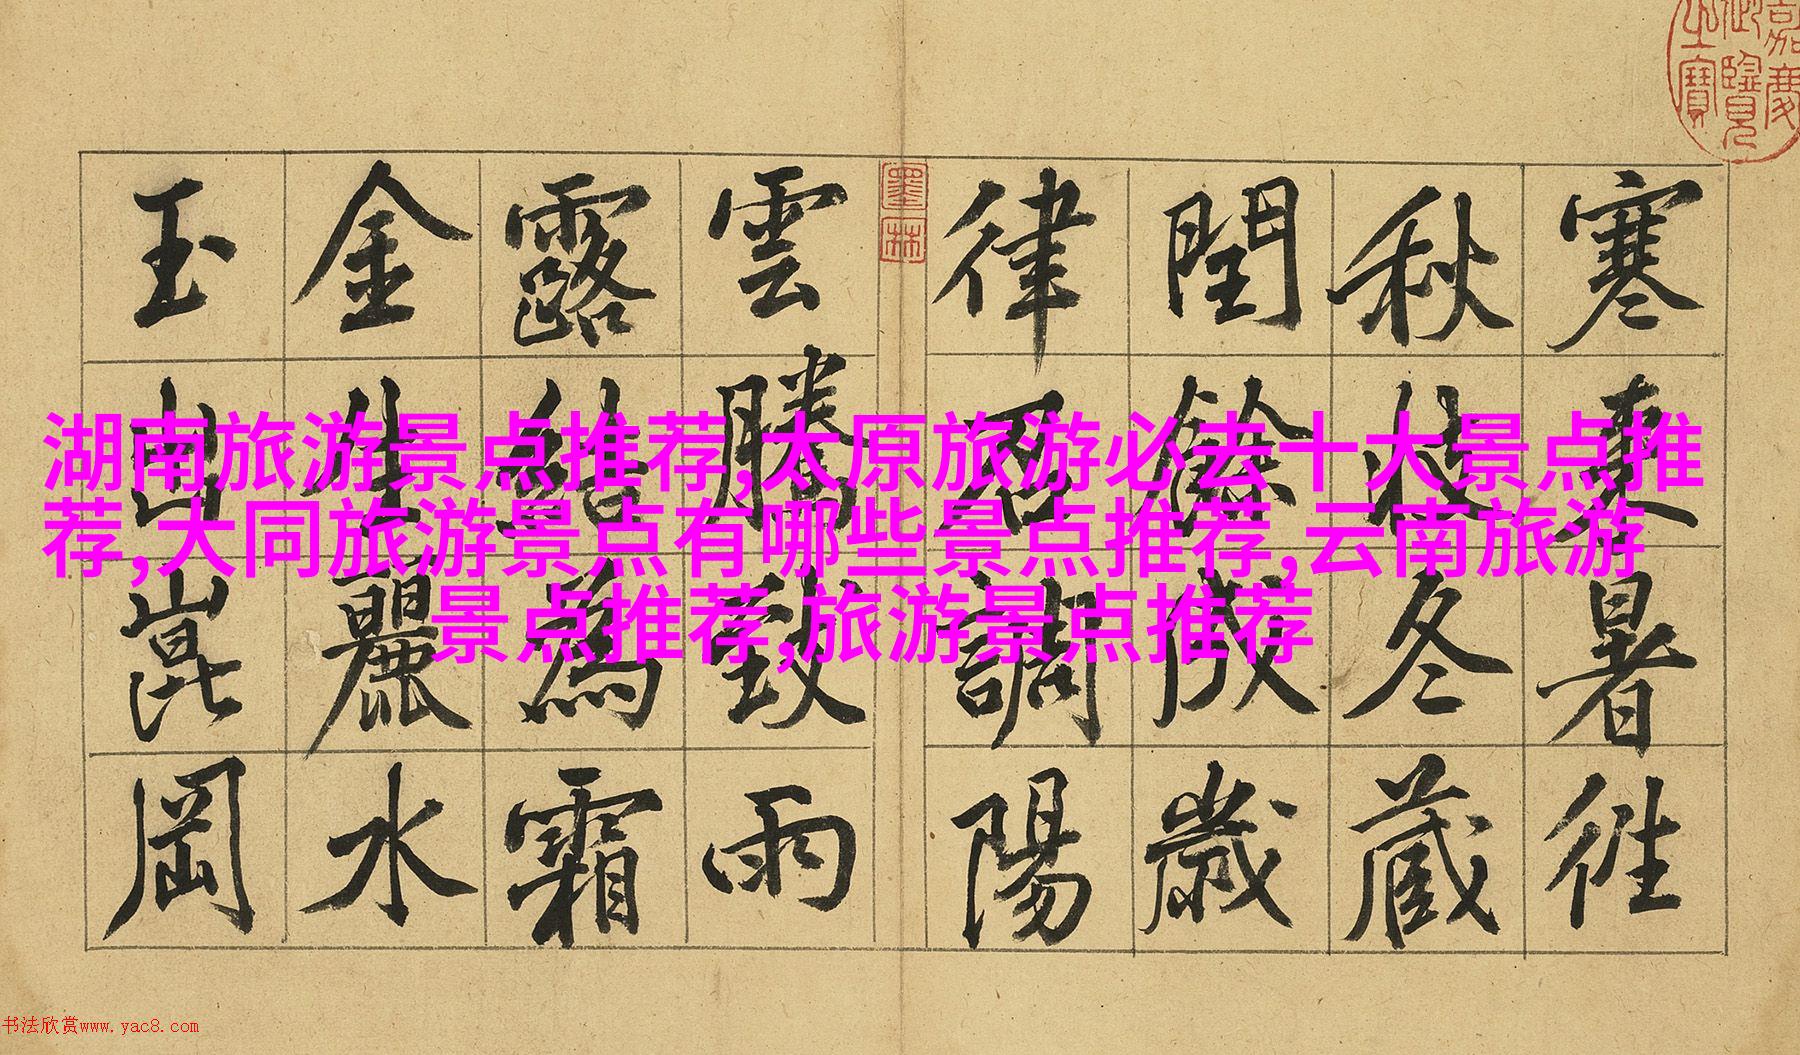 嘉慶
御覽
之寶
墨林
寒來暑徃
秋收冬蔵
閏餘成歲
律召調陽
雲騰致雨
露結為霜
金生麗水
玉出崑岡
湖南旅游景点推荐,太原旅游必去十大景点推
荐,大同旅游景点有哪些景点推荐,云南旅游
景点推荐,旅游景点推荐
书法欣赏www.yac8.com